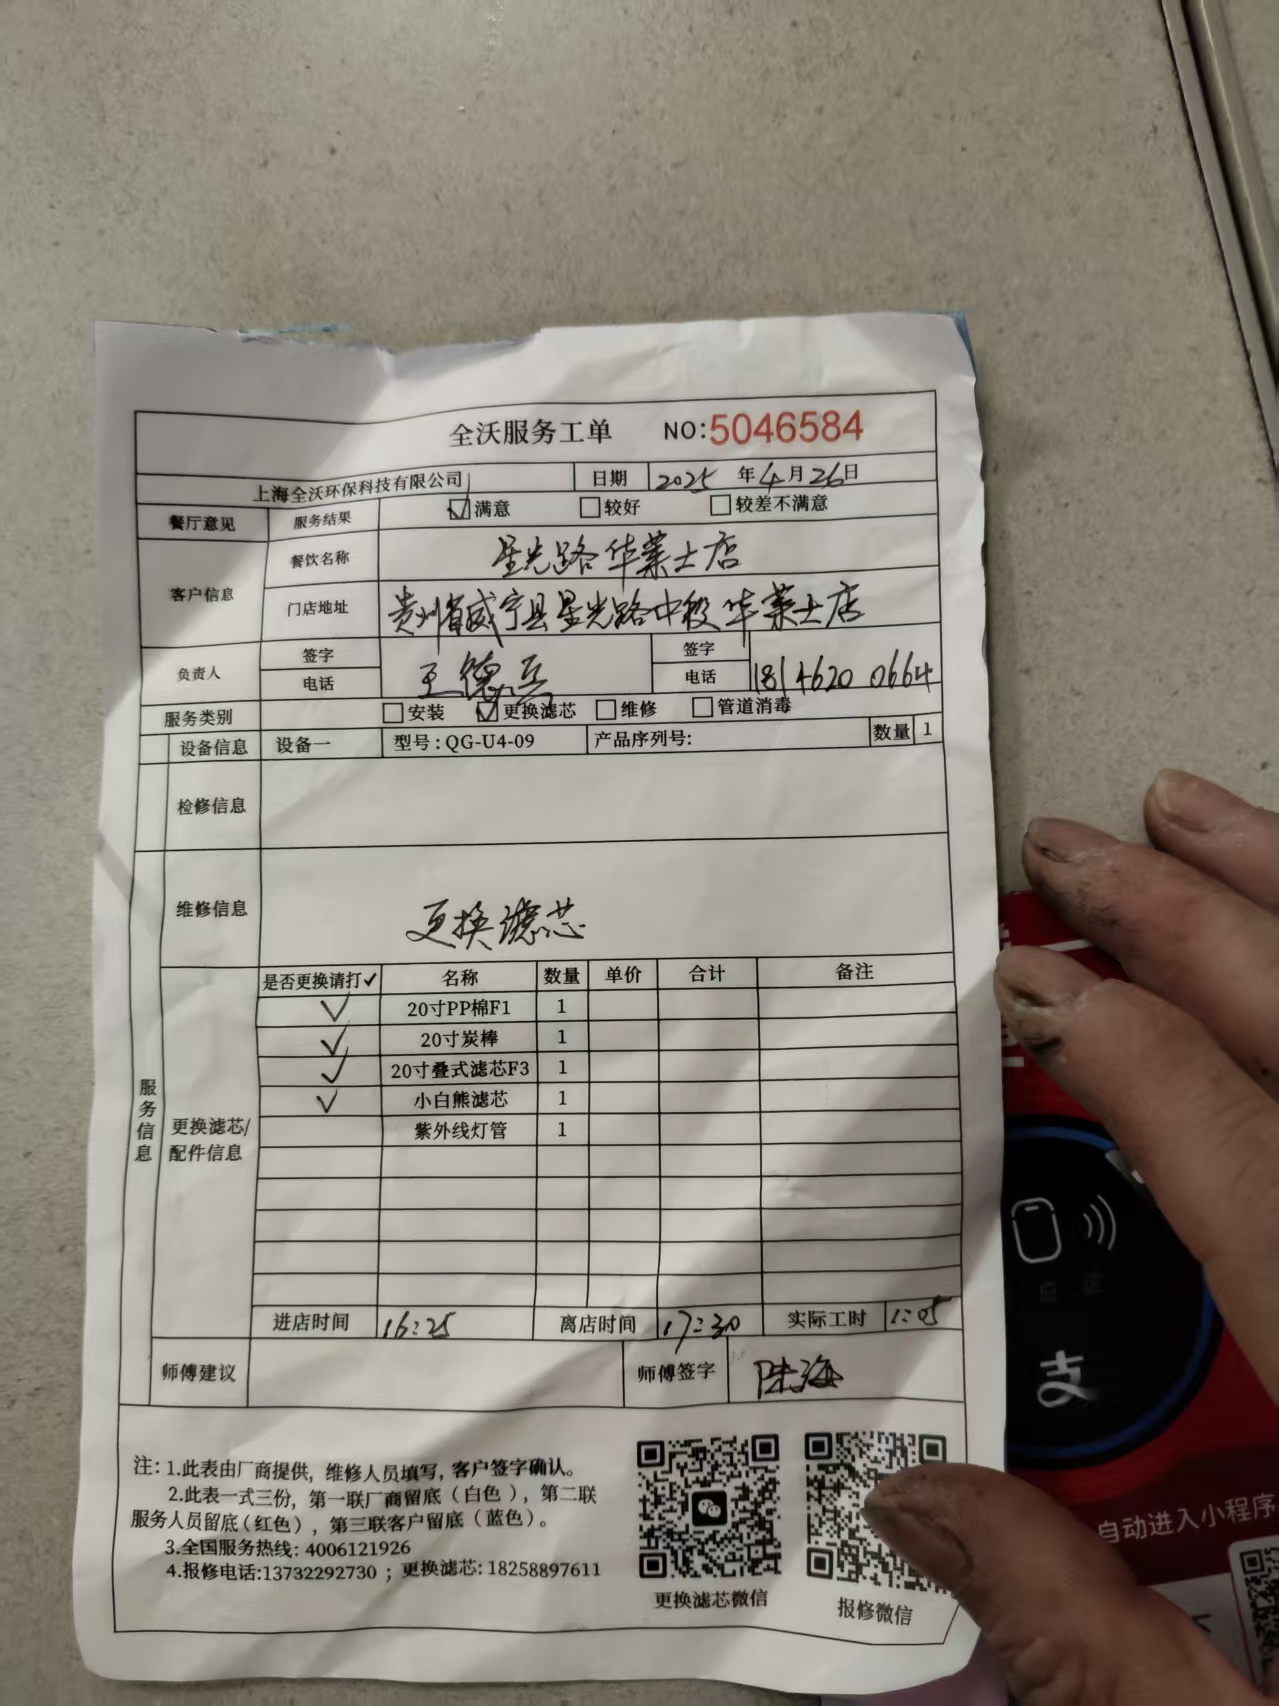 全沃服务工单 NO:5046584
上海全沃环保科技有限公司 日期 2025 年 4 月 26 日
餐厅意见 服务结果 满意 较好 较差不满意
客户信息 餐饮名称 星光路华莱士店
门店地址 贵州省威宁县星光路中段华莱士店
负责人 签字 王德兵 签字
电话 电话 18146200664
服务类别 安装 更换滤芯 维修 管道消毒
设备信息 设备一 型号:QG-U4-09 产品序列号: 数量 1
检修信息
维修信息 更换滤芯
服务信息
更换滤芯/
配件信息
是否更换请打✓ 名称 数量 单价 合计 备注
✓ 20寸PP棉F1 1
✓ 20寸炭棒 1
✓ 20寸叠式滤芯F3 1
✓ 小白熊滤芯 1
紫外线灯管 1
进店时间 16:25 离店时间 17:30 实际工时 1:05
师傅建议 师傅签字 陆海
注: 1.此表由厂商提供, 维修人员填写, 客户签字确认。
2.此表一式三份, 第一联厂商留底(白色), 第二联
服务人员留底(红色), 第三联客户留底(蓝色)。
3.全国服务热线: 4006121926
4.报修电话:13732292730 ; 更换滤芯: 18258897611
更换滤芯微信 报修微信
支
自动进入小程序